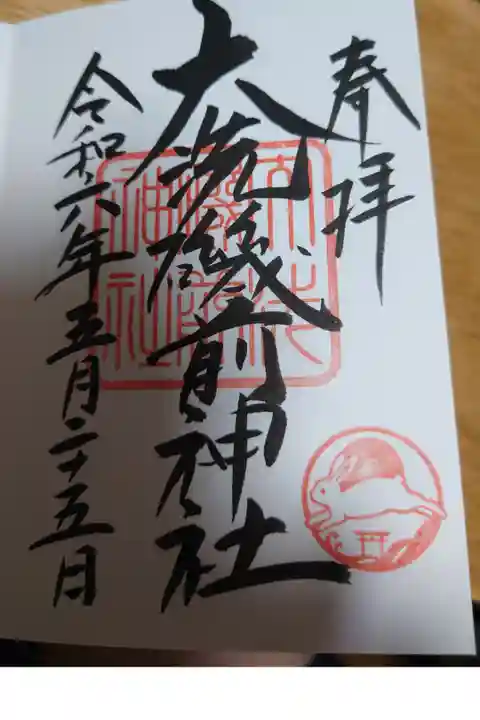 奉拝
大洗磯前神社
令和六年五月二十五日